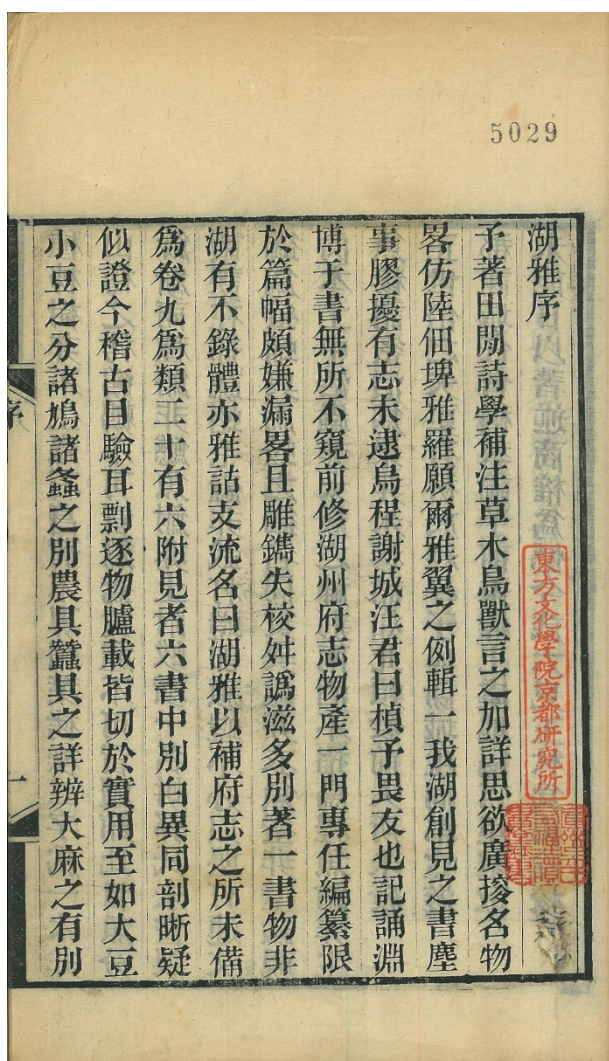 5029
湖雅序
予著田間詩學補注草木鳥獸言之加詳思欲廣搜名物
畧仿陸佃埤雅羅願爾雅翼之例輯一我湖創見之書塵
事膠擾有志未逮烏程謝城汪君曰楨予畏友也記誦淵
博于書無所不窺前修湖州府志物產一門專任編纂限
於篇幅頗嫌漏畧且雕鐫失校舛譌滋多別著一書物非
湖有不錄體亦雅詁支流名曰湖雅以補府志之所未備
爲卷九爲類二十有六附見者六書中別白異同剖晰疑
似證今稽古目驗耳剽逐物臚載皆切於實用至如大豆
小豆之分諸鳩諸螽之別農具蠶具之詳辨大麻之有別
序
一
東方文化學院京都研究所